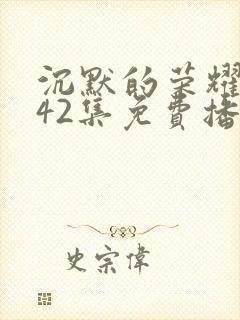 沉默的荣耀
42集免費播
史宗偉